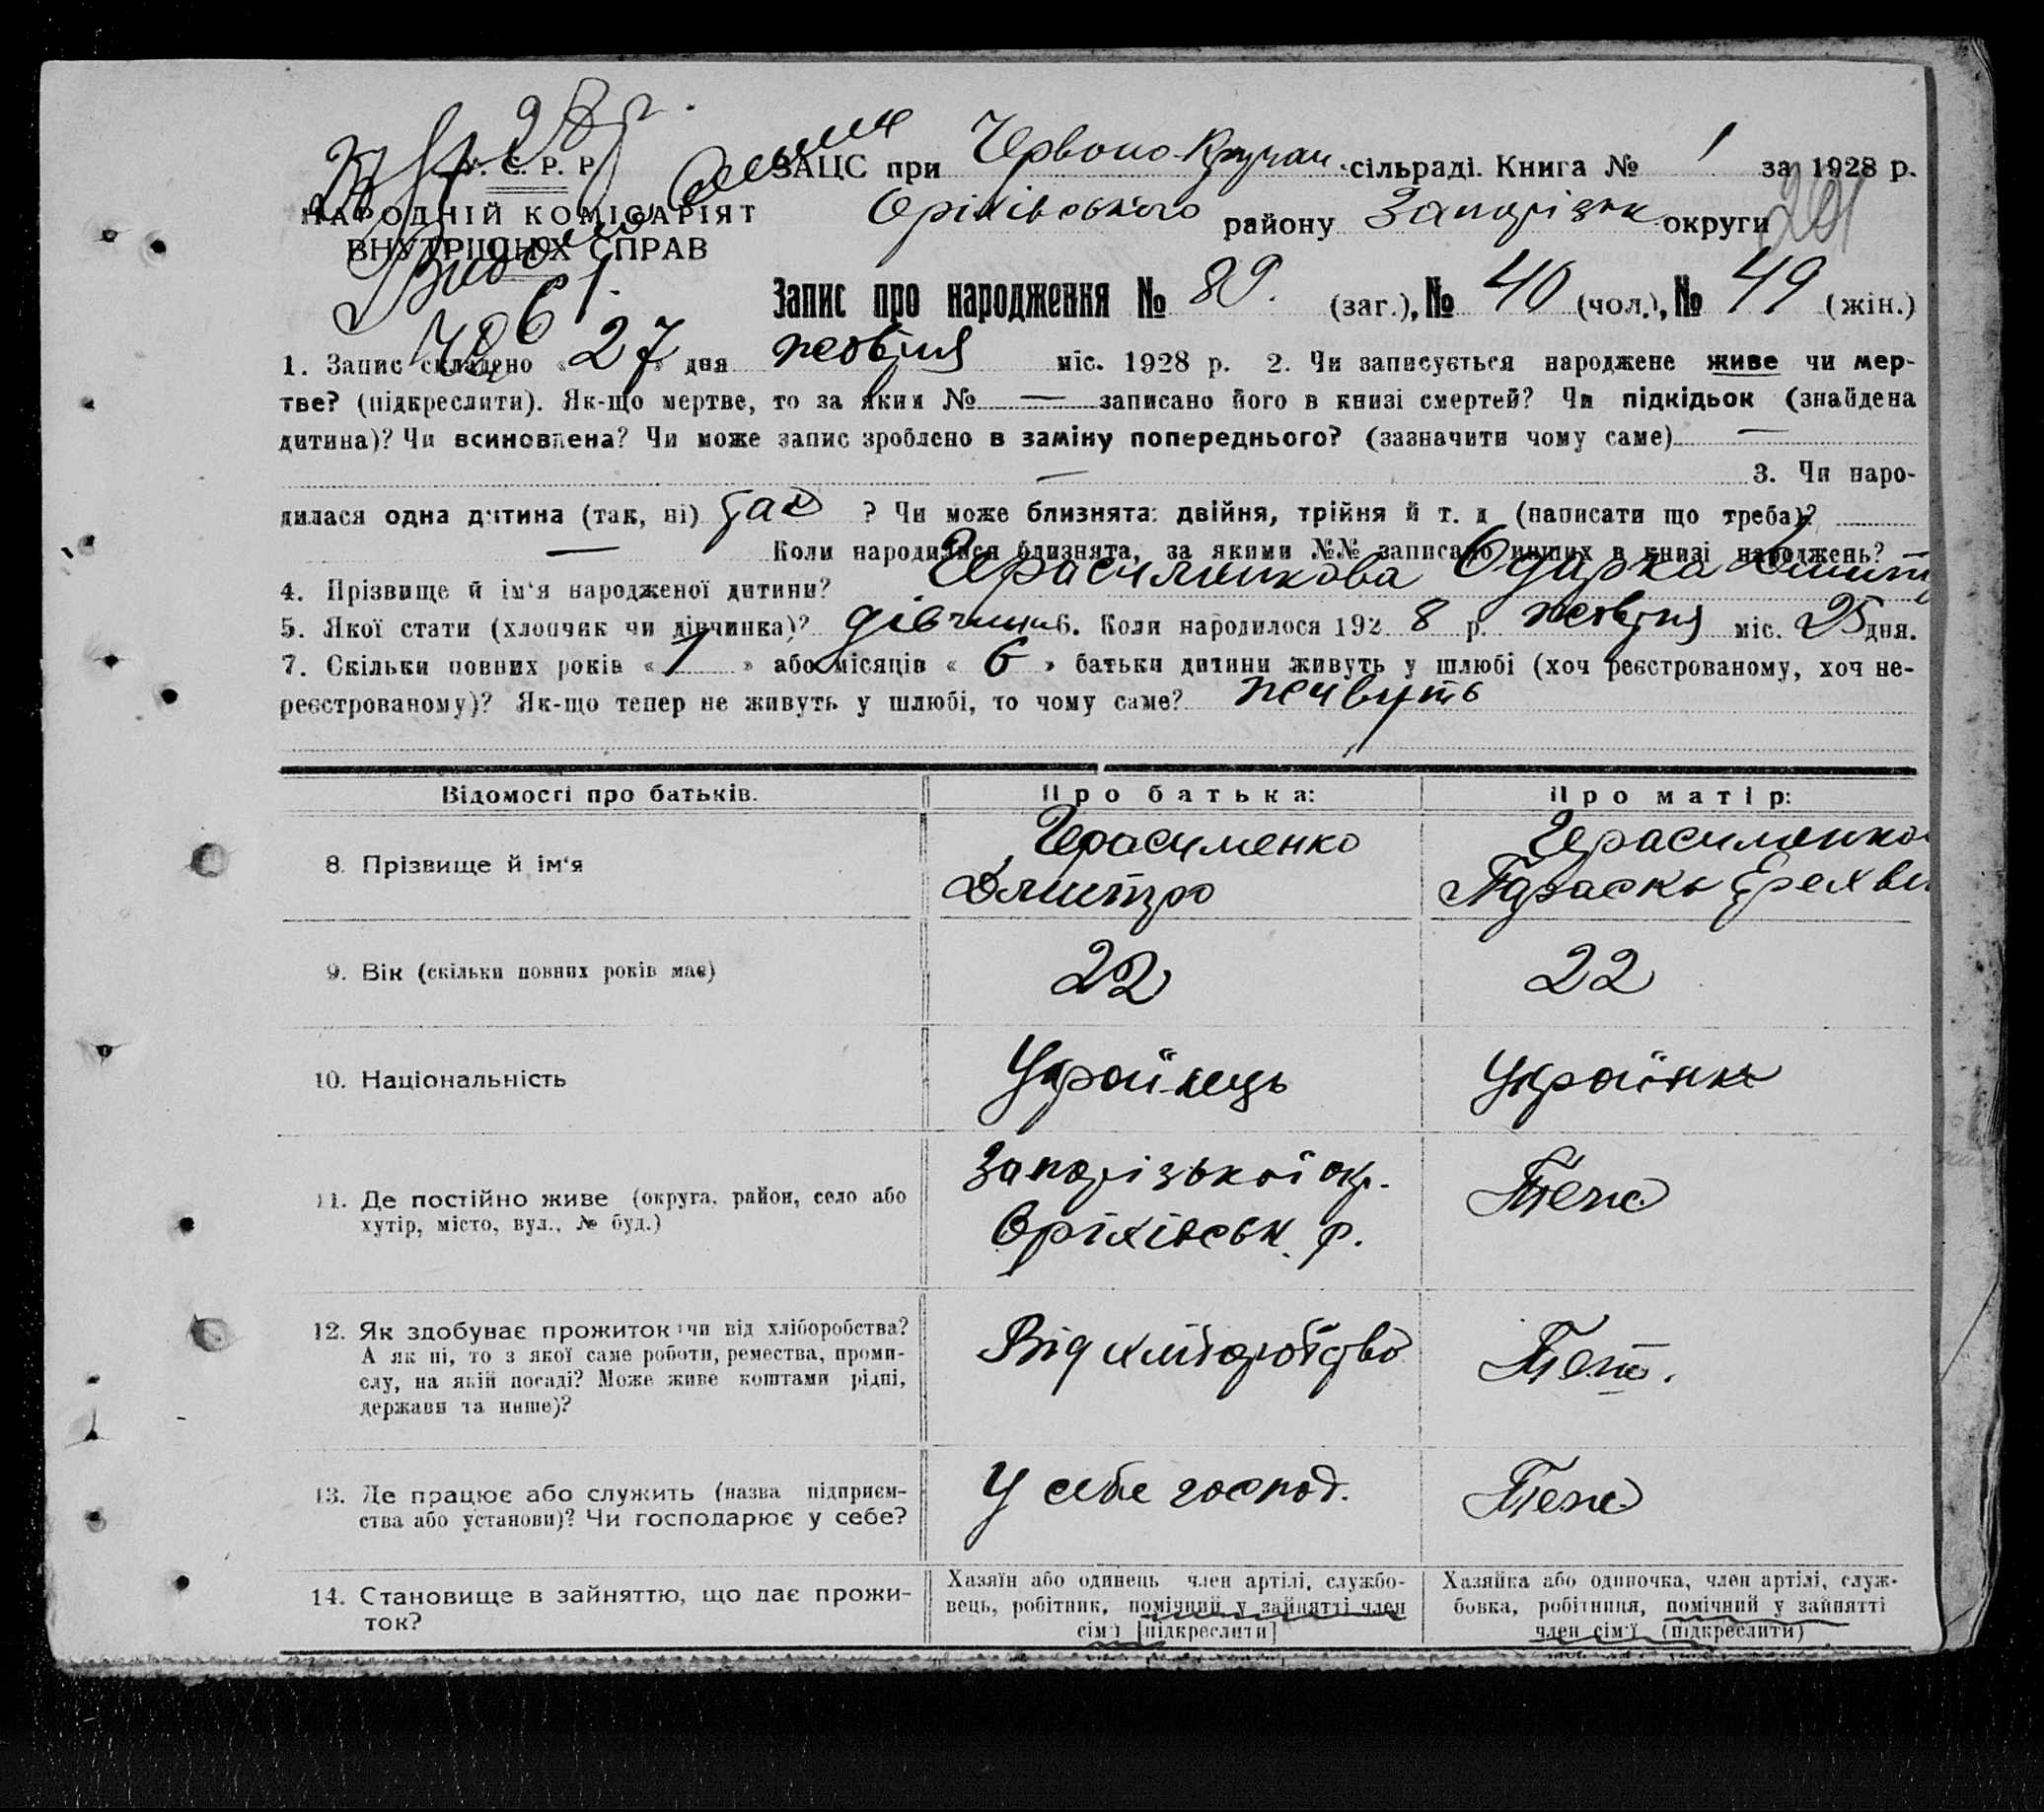 У. С. Р. Р.
НАРОДНІЙ КОМІСАРІЯТ
ВНУТРІШНІХ СПРАВ
ЗАЦС при Червоно-Кручан сільраді. Книга № 1 за 1928 р.
Оріхівського району Запорізьк округи 201
Запис про народження № 89. (заг.), № 40 (чол.), № 49 (жін.)
1. Запис складено « 27 » дня жовтня міс. 1928 р. 2. Чи записується народжене живе чи мер-
тве? (підкреслити). Як-що мертве, то за яким № — записано його в книзі смертей? Чи підкідьок (знайдена
дитина)? Чи всиновлена? Чи може запис зроблено в заміну попереднього? (зазначити чому саме) —
— 3. Чи наро-
дилася одна дитина (так, ні) так ? Чи може близнята: двійня, трійня й т. д (написати що треба)?
— Коли народилися близнята, за якими №№ записано инших в книзі народжень?
4. Прізвище й ім‘я народженої дитини? Герасименкова Одарка Дмит
5. Якої стати (хлопчик чи дівчинка)? дівчина 6. Коли народилося 192 8 р. жовтня міс. 25 дня.
7. Скільки повних років « 1 » або місяців « 6 » батьки дитини живуть у шлюбі (хоч реєстрованому, хоч не-
реєстрованому)? Як-що тепер не живуть у шлюбі, то чому саме? живуть
Відомості про батьків. Про батька: Про матір:
8. Прізвище й ім‘я Герасименко Дмитро Герасименко Параска
9. Вік (скільки повних років має) 22 22
10. Національність Українець Українка
11. Де постійно живе (округа, район, село або
хутір, місто, вул., № буд.)
Запорізької окр.
Оріхівськ. р.
Теж
12. Як здобуває прожиток: чи від хліборобства?
А як ні, то з якої саме роботи, ремества, проми-
слу, на якій посаді? Може живе коштами рідні,
держави та инше)?
Від хліборобства
Теж.
13. Де працює або служить (назва підприєм-
ства або установи)? Чи господарює у себе?
У себе господ.
Теж
14. Становище в зайняттю, що дає прожи-
ток?
Хазяїн або одинець член артілі, службо-
вець, робітник, помічний у зайнятті член
сім‘ї [підкреслити]
Хазяйка або одиночка, член артілі, служ-
бовка, робітниця, помічний у зайнятті
член сім‘ї (підкреслити)